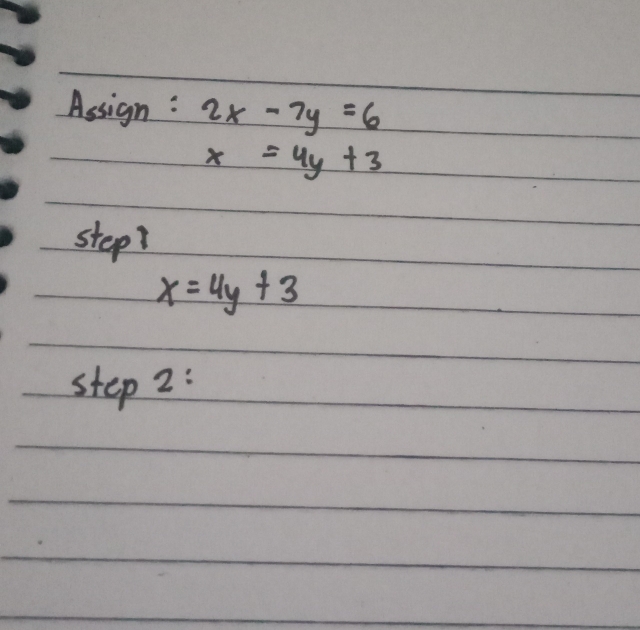 Assign : 2x - 7y = 6
x = 4y + 3
step 1
x = 4y + 3
step 2: